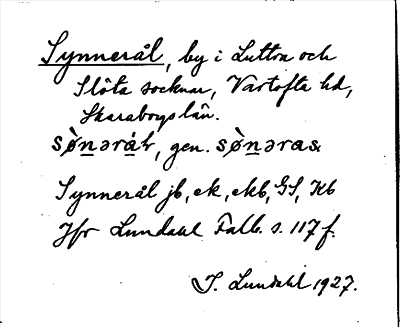 Synnerål, by i Luttra och
Slöta socknar, Vartofta hd,
Skaraborgs län.
sø̀n̲ərá̀ɫ, gen. sø̀n̲əras
Synnerål jb, ek, ekb, GS, Kb
Jfr Lundahl Falb. s. 117 f.
I. Lundahl 1927.